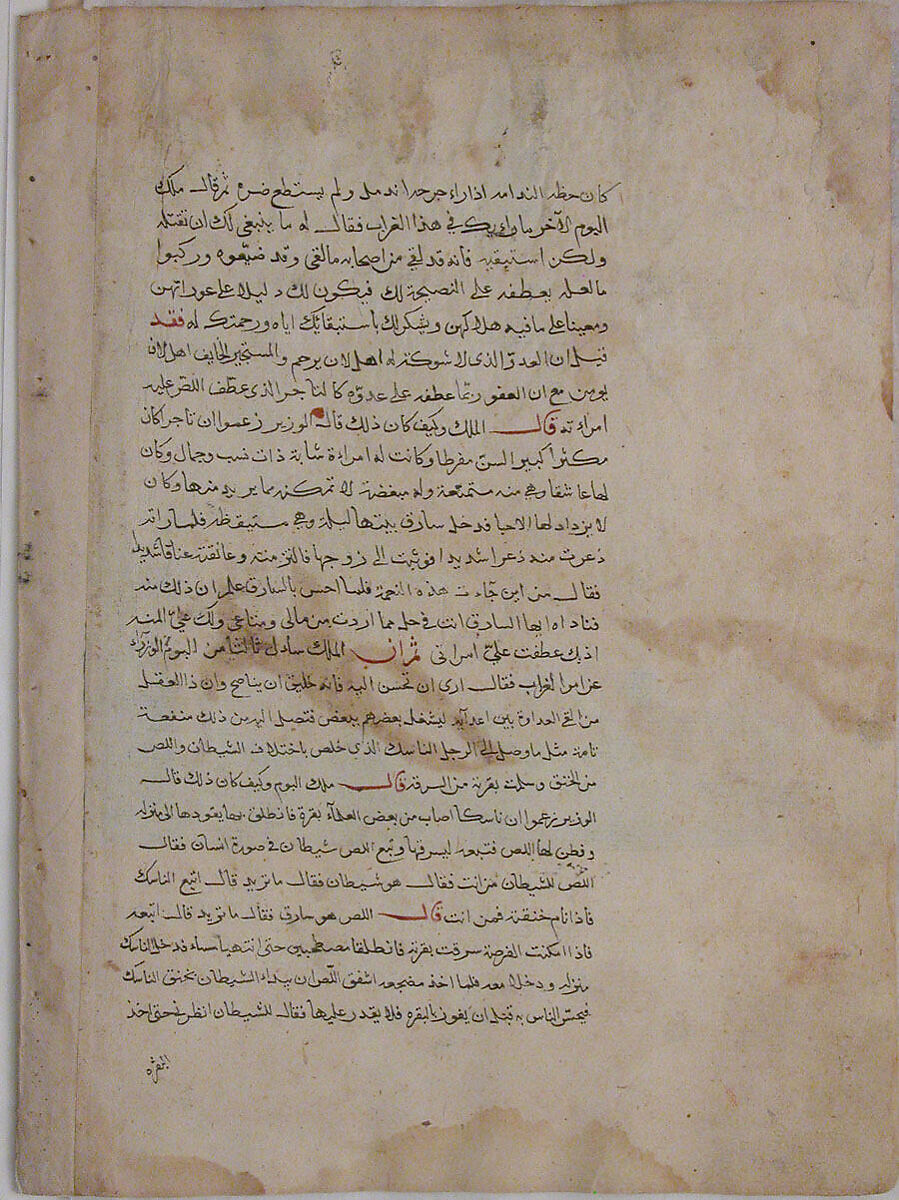 كان حظه الندامه اذا راء جرحه اندمل ولم يستطع ضره ثم قال ملك
اليوم الآخر ما رايك في هذا الغراب فقال له ما ينبغي لك ان تقتله
ولكن استبقيه فانه قد لقي من اصحابه ما لقي وقد ضيعوه وركبوا
ما لعله يعطفه على النصيحة لك فيكون لك دليلا على عوراتهن
ومعينا على ما فيه هلاكهن ويشكر لك باستبقائك اياه ورحمتك له فقد
قيل ان العدو الذي لا شوكة له اهل لان يرحم والمستجير الخايف اهل لان
يومن مع ان العفو ربما عطفه على عدوه كالتاجر الذي عطف اللص عليه
امراءته قال الملك وكيف كان ذلك قال الوزير زعموا ان تاجرا كان
مكثرا كبير السن مفرطا وكانت له امراءة شابة ذات نسب وجمال وكان
لها عاشقا وهي منه متمنعة وله مبغضة لا تمكنه مما يريد منها وكان
لا يزداد لها الا حبا فدخل سارق بيتها ليلة وهي مستيقظه فلما راته
ذعرت منه ذعرا شديدا فوثبت الى زوجها فالتزمته وعانقته عناقا شديدا
فقال من اين جاءت هذه النعمة فلما احس بالسارق علم ان ذلك منه
فناداه ايها السارق انت في حل مما اردت من مالي ومتاعي ولك علي المنه
اذ بك عطفت علي امراتي ثم ان الملك سأل ثالثا من اليوم الوزراء
عن امر الغراب فقال ارى ان تحسن اليه فانه خليق ان يناصح وان ذا العقل
من القى العداوة بين اعدايه ليشغل بعضهم ببعض فتصل اليه من ذلك منفعة
تامة مثل ما وصل الى الرجل الناسك الذي خلص باختلاف الشيطان واللص
من الخنق وسلمت بقرته من السرقه قال ملك البوم وكيف كان ذلك قال
الوزير زعموا ان ناسكا اصاب من بعض العظماء بقرة فانطلق بها يقودها الى منزله
وفطن لها اللص فتبعه ليسرقها وتبع اللص شيطان في صورة انسان فقال
اللص للشيطان من انت فقال هو شيطان فقال ما تريد قال اتبع الناسك
فاذا نام خنقته فمن انت قال اللص هو سارق فقال ما تريد قال اتبعه
فاذا امكنت الفرصة سرقت بقرته فانطلقا مصطحبين حتى انتهيا مساء فدخل الناسك
منزله ودخلا معه فلما اخذ مضجعه اشفق اللص ان يبداء الشيطان بخنق الناسك
فيحس الناس به قبل ان يفوز بالبقره فلا يقدر عليها فقال للشيطان انظرني حتى اخذ
البقره